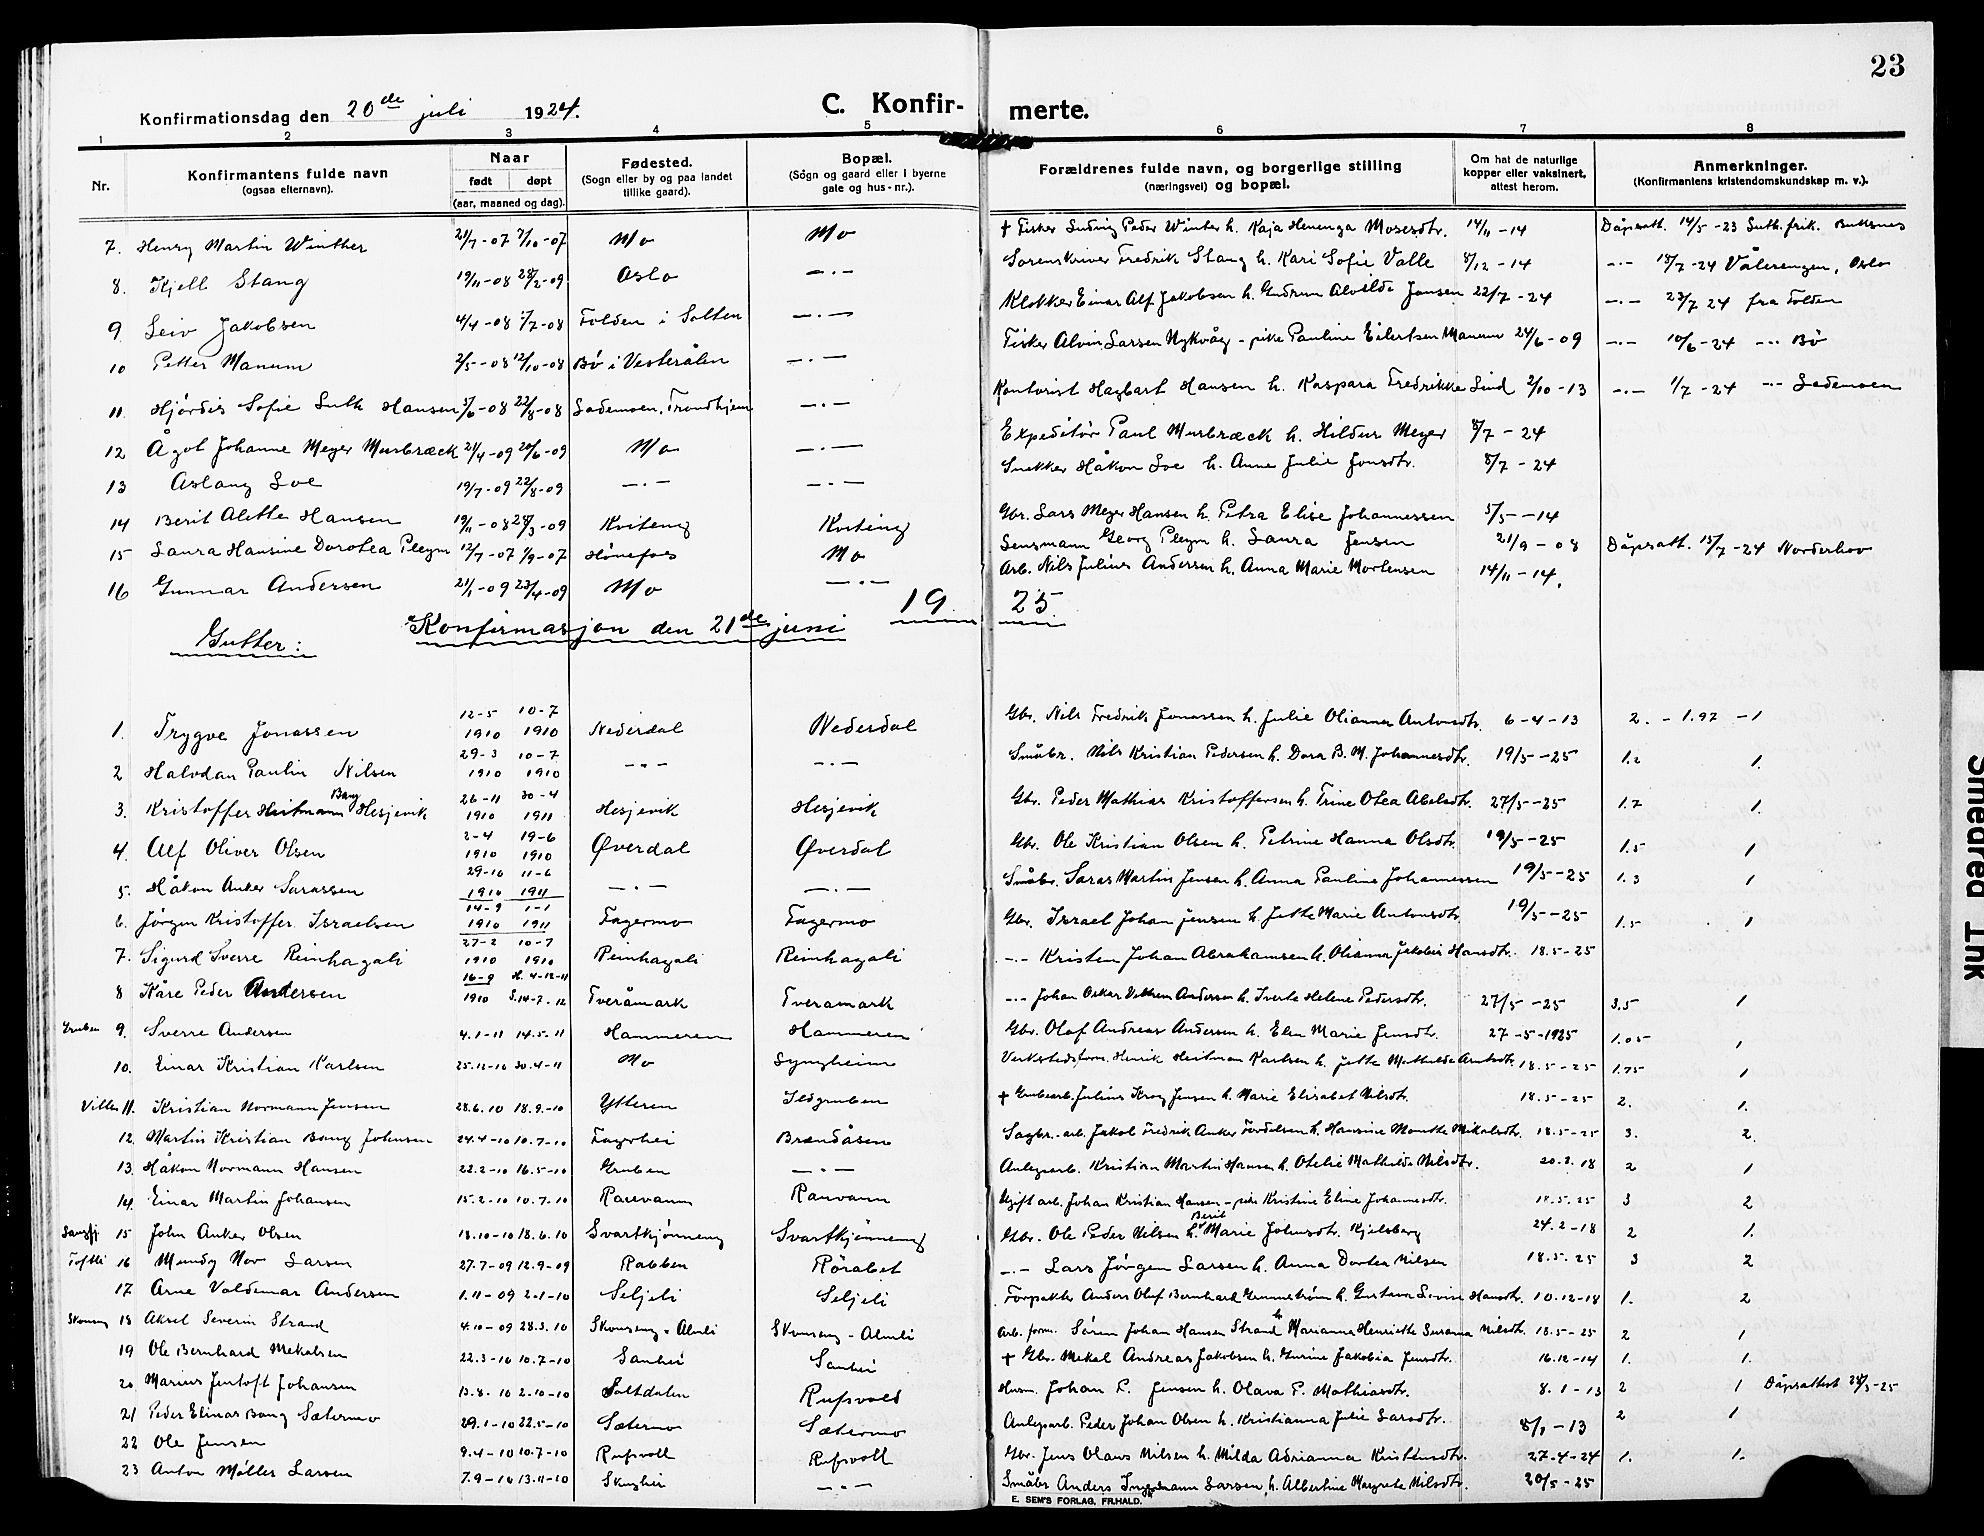 23
Konfirmationsdag den 20de juli 1924.
C. Konfir- merte.
1 2 3 4 5 6 7 8
Nr.
Konfirmantens fulde navn (ogsaa efternavn).
Naar født døpt (aar, maaned og dag).
Fødested. (Sogn eller by og paa landet tillike gaard).
Bopæl. (Sogn og gaard eller i byerne gate og hus-nr.).
Forældrenes fulde navn, og borgerlige stilling (næringsvei) og bopæl.
Om hat de naturlige kopper eller vaksinert, attest herom.
Anmerkninger. (Konfirmantens kristendomskundskap m. v.).
7. Henry Martin Winther 21/7-07 7/10-07 Mo Mo + Fisker Ludvig Peder Winter h. Kaja Henenga Mosesdtr. 14/11-14 Dåpsatt. 14/5-23 Luth. frik. Buksnes
8. Kjell Stang 19/11-08 28/2-09 Oslo -.- Sorenskriver Fredrik Stang h. Kari Sofie Valle 8/12-14 -.- 18/7-24 Vålerengen, Oslo
9 Leiv Jakobsen 4/4-08 5/7-08 Folden i Salten -.- Klokker Einar Alf Jakobsen h. Gudrun Alvilde Jansen 22/7-24 -.- 23/7 24 fra Folden
10 Petter Manum 2/5-08 12/10-08 Bø i Vesterålen -.- Fisker Alvin Larsen Nykvåg - pike Pauline Eilertsen Manum 24/6-09 -.- 10/6-24 -.- Bø
11. Hjördis Sofie Luth Hansen 3/6-08 22/8-08 Lademoen, Trondhjem -.- Kontorist Hagbart Hansen h. Kaspara Fredrikke Lind 2/10-13 -.- 1/7-24 -.- Lademoen
12 Ågot Johanne Meyer Mursbræck 21/4-09 20/6-09 Mo -.- Expeditör Paul Mursbræck h. Hildur Meyer 8/7-24
13 Aslaug Loe 19/7-09 22/8-09 -.- -.- Snekker Håkon Loe h. Anne Julie Jonsdtr. 8/7-24
14 Berit Alette Hansen 19/11-08 28/3-09 Kviteng Kviteng Gbr. Lars Meyer Hansen h. Petra Elise Johannessen 5/5-14
15 Laura Hansine Dorotea Pleym 12/7-07 1/9-07 Hönefoss Mo Lensmann Georg Pleym h. Laura Jensen 21/9-08 Dåpsatt. 15/7-24 Norderhov
16 Gunnar Andersen 21/1-09 23/4-09 Mo -.- Arb. Nils Julius Andersen h. Anna Marie Mortensen 14/11-14.
Konfirmasjon den 21de juni 1925.
Gutter:
1. Trygve Jonassen 12-5 1910 10-7 1910 Nederdal Nederdal Gbr. Nils Fredrik Jonassen h. Julie Olianna Antonsdtr. 6-4-13 2. - 1.97 - 1
2 Halvdan Paulin Nilsen 29-3 1910 10-7 1910 -.- -.- Småbr. Nils Kristian Pedersen h. Dora B. M. Johannesdtr. 19/5-25 1.2 1.
3. Kristoffer Heitmann Bang Hesjevik 26-11 1910 30-4 1911 Hesjevik Hesjevik Gbr. Peder Mathias Kristoffersen h. Trine Otea Abelsdtr. 27/5-25 1.7 1.
4. Alf Oliver Olsen 2-4 1910 19-6 1910 Øverdal Øverdal Gbr. Ole Kristian Olsen h. Petrine Hanna Olsdtr. 19/5-25 1.5 1
5. Håkon Anker Sarassen 29-10 1910 11-6 1911 -.- -.- Småbr. Saras Martin Jensen h. Anna Pauline Johannessen 19/5-25 1.3 1
6. Jörgen Kristoffer Israelsen 14-9 1910 1-1 1911 Fagermo Fagermo Gbr. Israel Johan Jensen h. Jette Marie Antonsdtr. 19/5-25 1.5 1
7. Sigurd Sverre Reinhagali 27-2 1910 10-7 1910 Reinhagali Reinhagali -.- Kristen Johan Abrahamsen h. Olianna Jakobea Hansdtr. 18.5-25
8 Kåre Peder Andersen 16-9 1910 H. 4-12-11 S. 14-7-12 Tveråmark Tveramark -.- Johan Oskar Vilhem Andersen h. Iverte Helene Pedersdtr. 27/5-25 3.5 1
Gruben 9. Sverre Andersen 4.1-11 14.5-11 Hammeren Hammeren Gbr. Olaf Andreas Andersen h. Elen Marie Jensdtr. 27-5-1925 1.05 1
10. Einar Kristian Karlsen 25.12-10 30.4-11 Mo Lyngheim Verkstedsform. Henrik Heitman Karlsen h. Jette Mathilde Arntsdtr. 18.5-25 1.75 1
11. Kristian Normann Jensen 28.6.10 18.9-10 Ytteren Ildgruben + Grubearb. Julius Krog Jensen h. Marie Elisabet Nilsdtr. 18.5-25 2. 1.
12. Martin Kristian Bang Johnsen 24.4-10 10.7-10 Fagerhei Brendåsen Sagbr.-arb. Jakob Fredrik Anker Fordelsen h. Hansine Monette Mikalsdtr. 18.5-25 3. 2.
13. Håkon Normann Hansen 22.2-10 16.5-10 Gruben -.- Anlegsarb. Kristian Martin Hansen h. Otelie Mathilde Nilsdtr. 20.2.18 2 1
14. Einar Martin Johansen 15.2-10 10.7.10 Ranvann Ranvann Ugift arb. Johan Kristian Hansen - pike Kristine Eline Johannesdtr. 18.5.25 3 2
15 John Anker Olsen 18.10-10 18.6.10 Svartkjönneng Svartkjönneng Gbr. Ole Peder Nilsen h. Berit Marie Johnsdtr. Kjelsberg 24.2-18 2 1.
16 Mundy Nor Larsen 27.7-09 12.9-09 Rabben Rörabet -.- Lars Jörgen Larsen h. Anna Dortea Nilsen 18.5.25 3 2
17 Arne Valdemar Andersen 1.11-09 2-1-10 Seljeli Seljeli Forpakter Anders Olaf Bernhard Grunnström h. Gustava Livine Hansdtr. 10.12-18 1. 2
18 Aksel Severin Strand 4.10-09 28.3.10 Skonseng-Almli Skonseng-Almli Arb. form. Sören Johan Hansen Strand h Marianna Henriette Susanna Nilsdtr. 18.5-25 2 1
19 Ole Bernhard Mekalsen 22.3-10 10.7-10 Sanhei Sanhei + Gbr. Mekal Andreas Jakobsen h. Gurine Jakobia Jensdtr. 16.12-14 1. 1.
20 Marius Jentoft Johansen 13.8.10 2.10-10 Saltdalen Rufsvold Husm. Johan P. Jensen h. Olava P. Mathiasdtr. 8.1-13 2 1 Dåpsattest 28/5-25
21 Peder Elinar Bang Sætermo 29.1-10 22.5-10 Sætermo Sætermo Anlegsarb. Peder Johan Olsen h. Kristianna Julie Larsdtr. 8/1-13 2 1
22 Ole Jensen 9.4-10 10.7-10 Rufsvoll Rufsvoll Gbr. Jens Olaus Nilsen h. Milda Adrianna Kristensdtr. 27.4-24 1. 1.
23 Anton Möller Larsen 7.9-10 13.11-10 Skoghei -.- Småbr Anders Ingemann Larsen h. Albertine Margrete Nilsdtr. 20/5-25
E. SEM'S FORLAG, FR.HALD.
Smeared Ink